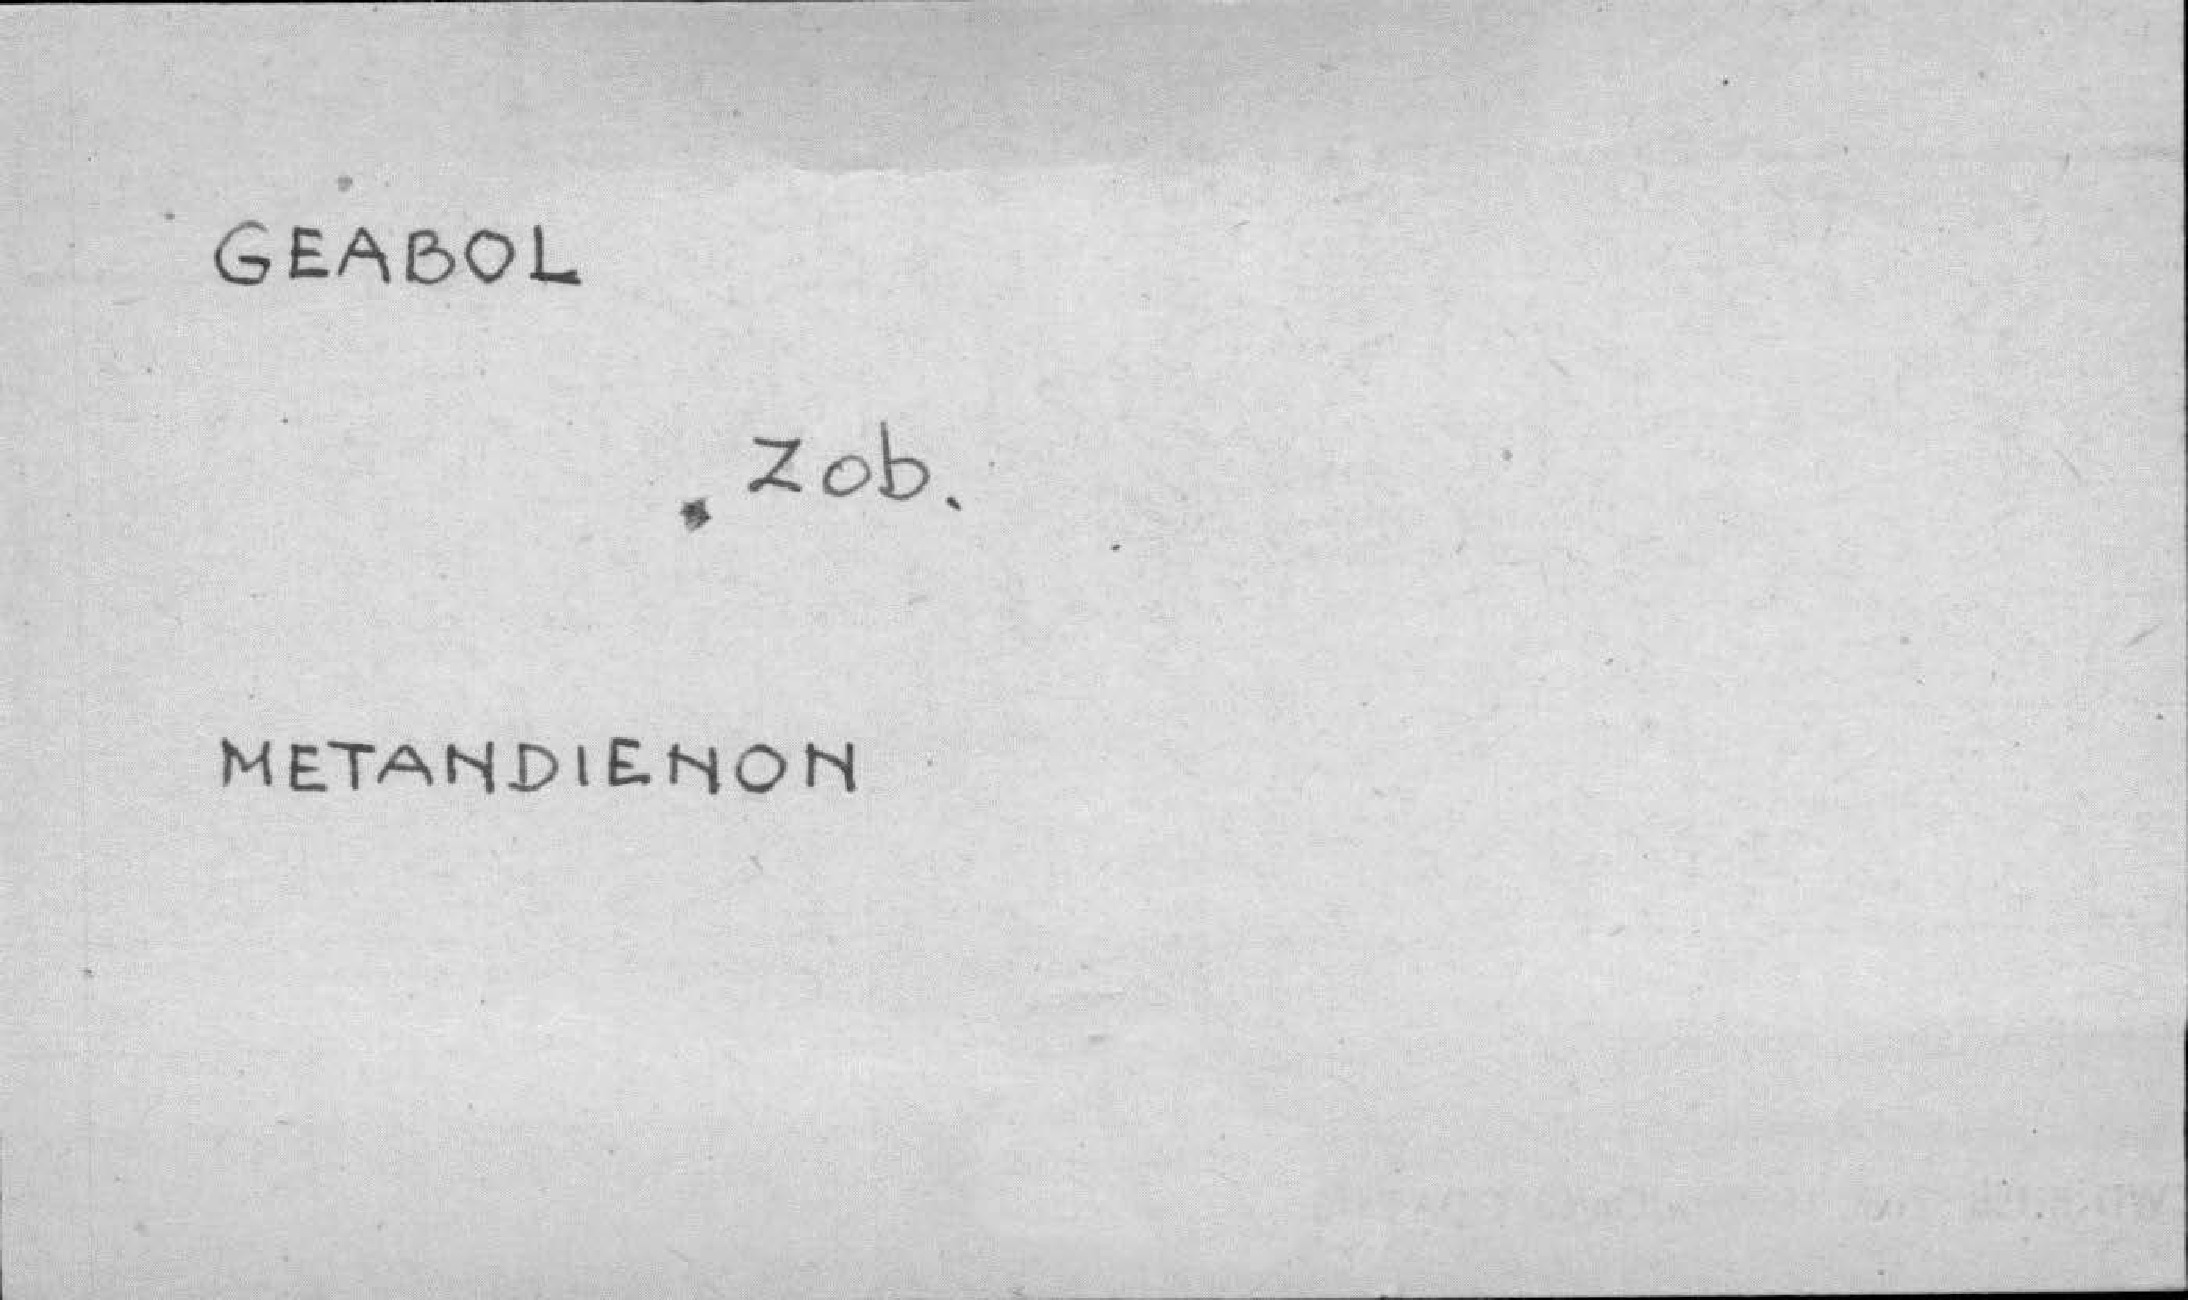 GEABOL
Zob.
METANDIENON